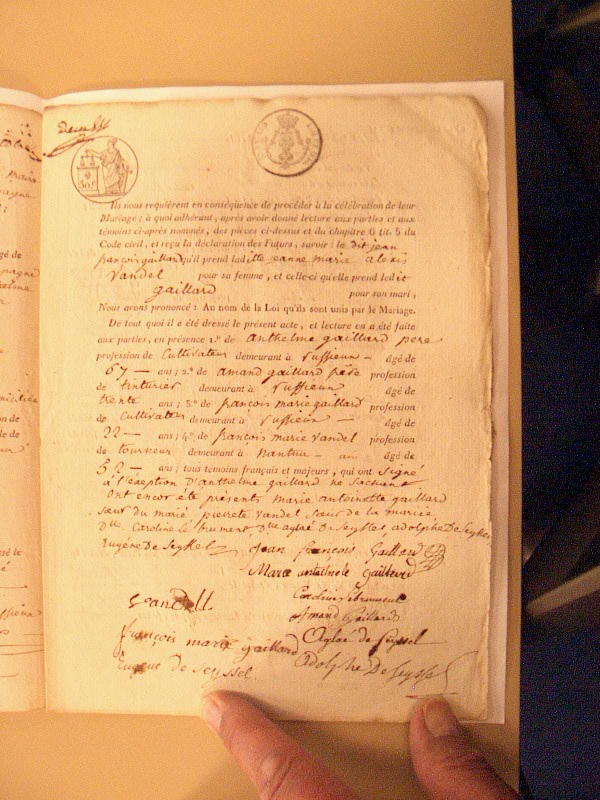 Ils nous requièrent en conséquence de procéder à la célébration de leur
Mariage; à quoi adhérant, après avoir donné lecture aux parties et aux
témoins ci-après nommés, des pièces ci-dessus et du chapitre 6 tit. 5 du
Code civil, et reçu la déclaration des Futurs, savoir: le dit jean
françois gaillard qu'il prend ladite jeanne marie alexis
vandel pour sa femme, et celle-ci qu'elle prend ledit
gaillard pour son mari,
Nous avons prononcé: Au nom de la Loi qu'ils sont unis par le Mariage.
De tout quoi il a été dressé le présent acte, et lecture en a été faite
aux parties, en présence 1.° de anthelme gaillard pere
profession de Cultivateur demeurant à ruffieux — âgé de
67 — ans; 2.° de amand gaillard frère profession
de tinturier demeurant à ruffieux âgé de
trente ans; 3.° de françois marie gaillard profession
de Cultivateur demeurant à ruffieux — âgé de
22 — ans; 4.° de françois marie vandel profession
de tourneur demeurant à nantua — âgé de
52 — ans; tous témoins français et majeurs, qui ont signé
à l'exception d'anthelme gaillard ne sachant
ont encor été présents marie antoinette gaillard
sœur du marié pierrete vandel sœur de la mariée
Dlle Caroline le brument Dlle aglaé de seyssel, adolphe De Seyssel
Eugéne De Seyssel
jean françois Gaillard
Marie antoinete gaillard
Caroline lebrument
vandel
Amand Gaillard
françois marie gaillard
Aglaé de Seyssel
Eugene de Seyssel
adolphe De Seyssel